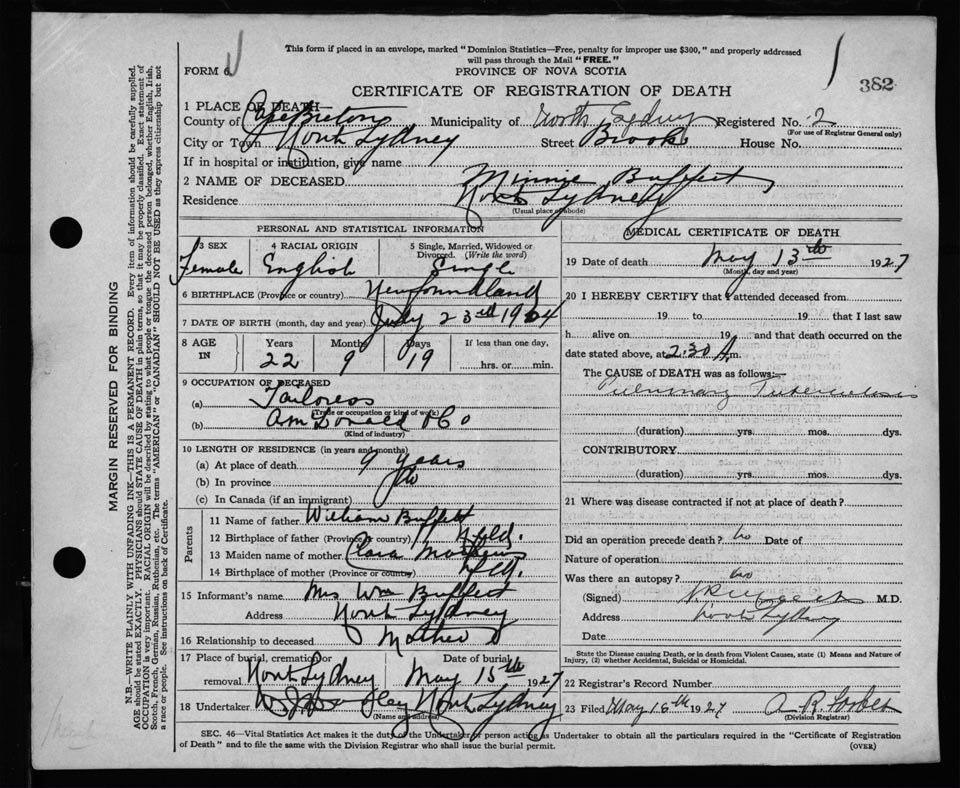 This form if placed in an envelope, marked "Dominion Statistics—Free, penalty for improper use $300," and properly addressed
will pass through the Mail "FREE."
FORM 6
PROVINCE OF NOVA SCOTIA
382
CERTIFICATE OF REGISTRATION OF DEATH
1 PLACE OF DEATH
County of Cape Breton Municipality of North Sydney Registered No. 2
(For use of Registrar General only)
City or Town North Sydney Street Brook House No.
If in hospital or institution, give name
2 NAME OF DECEASED Minnie Buffett
Residence North Sydney
(Usual place of abode)
PERSONAL AND STATISTICAL INFORMATION
3 SEX 4 RACIAL ORIGIN 5 Single, Married, Widowed or
Divorced. (Write the word)
Female English Single
6 BIRTHPLACE (Province or country) Newfoundland
7 DATE OF BIRTH (month, day and year) July 23rd 1904
8 AGE IN Years Months Days If less than one day,
22 9 19 hrs. or min.
9 OCCUPATION OF DECEASED
(a) Tailoress
(Trade or occupation or kind of work)
(b) A McDonald & Co
(Kind of industry)
10 LENGTH OF RESIDENCE (in years and months)
(a) At place of death 9 years
(b) In province
(c) In Canada (if an immigrant)
Parents
11 Name of father William Buffett
12 Birthplace of father (Province or country) Nfld.
13 Maiden name of mother Clara Mathews
14 Birthplace of mother (Province or country)
15 Informant's name Mrs Wm Buffett
Address North Sydney
16 Relationship to deceased Mother
17 Place of burial, cremation or Date of burial
removal North Sydney May 15th 1927
18 Undertaker North Sydney
(Name and address)
MEDICAL CERTIFICATE OF DEATH
19 Date of death May 13th 1927
(Month, day and year)
20 I HEREBY CERTIFY that I attended deceased from
19 to 19 that I last saw
h alive on 19 and that death occurred on the
date stated above, at 2.30 A.m.
The CAUSE of DEATH was as follows:—
Pulmonary Tuberculosis
(duration) yrs. mos. dys.
CONTRIBUTORY
(duration) yrs. mos. dys.
21 Where was disease contracted if not at place of death?
Did an operation precede death? No Date of
Nature of operation
Was there an autopsy? No
(Signed) M.D.
Address North Sydney
Date
State the Disease causing Death, or in death from Violent Causes, state (1) Means and Nature of
Injury, (2) whether Accidental, Suicidal or Homicidal.
22 Registrar's Record Number
23 Filed May 16th 1927 A R Forbes
(Division Registrar)
SEC. 46—Vital Statistics Act makes it the duty of the Undertaker or person acting as Undertaker to obtain all the particulars required in the "Certificate of Registration
of Death" and to file the same with the Division Registrar who shall issue the burial permit.
(OVER)
MARGIN RESERVED FOR BINDING
N.B.—WRITE PLAINLY WITH UNFADING INK—THIS IS A PERMANENT RECORD. Every item of information should be carefully supplied.
AGE should be stated EXACTLY. PHYSICIANS should STATE CAUSE OF DEATH in plain terms, so that it may be properly classified. Exact statement of
OCCUPATION is very important. RACIAL ORIGIN will be described by stating to what people or tongue the deceased person belonged, whether English, Irish,
Scotch, French, German, Russian, Ruthenian, etc. The terms "AMERICAN" or "CANADIAN" SHOULD NOT BE USED as they express citizenship but not
a race or people. See instructions on back of Certificate.